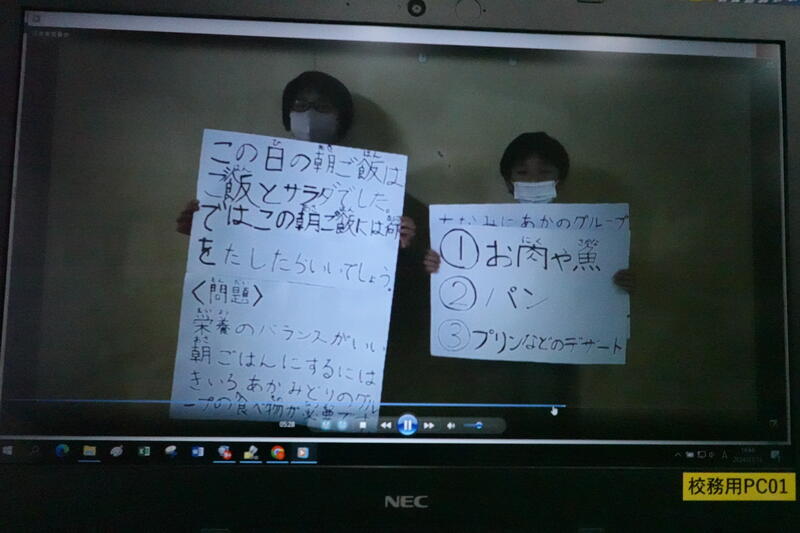 この日の朝ご飯は
ご飯とサラダでした。
ではこの朝ご飯には何
をたしたらいいでしょう。
〈問題〉
栄養のバランスがいい
朝ごはんにするには
きいろ、あか、みどりのグル
ープの食べ物が必要です
ちなみにあかのグループ
①お肉や魚
②パン
③プリンなどのデザート
05:28
NEC
校務用PC01